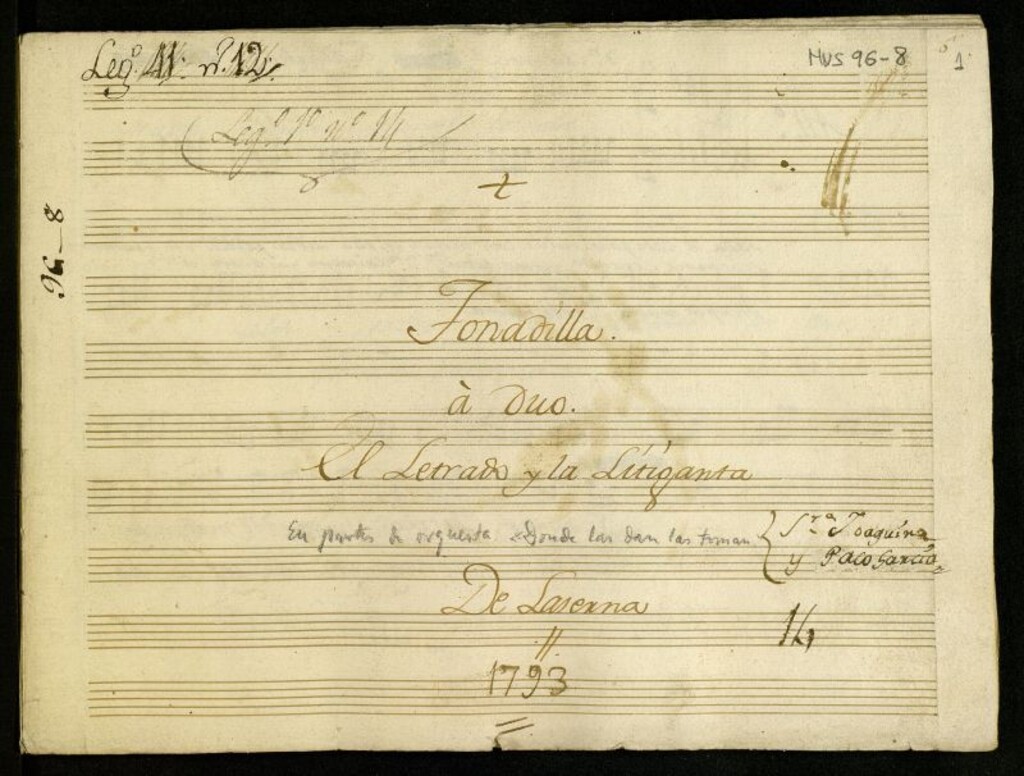 Leg.º 41. n.º 12.
MUS 96-8
1
Leg.º 1º nº 14
96-8
Tonadilla.
à Duo.
El Letrado y la Litiganta
En partes de orquesta «Donde las dan las toman
Sra. Joaquina
y Paco Garcia
De Laserna
14
1793